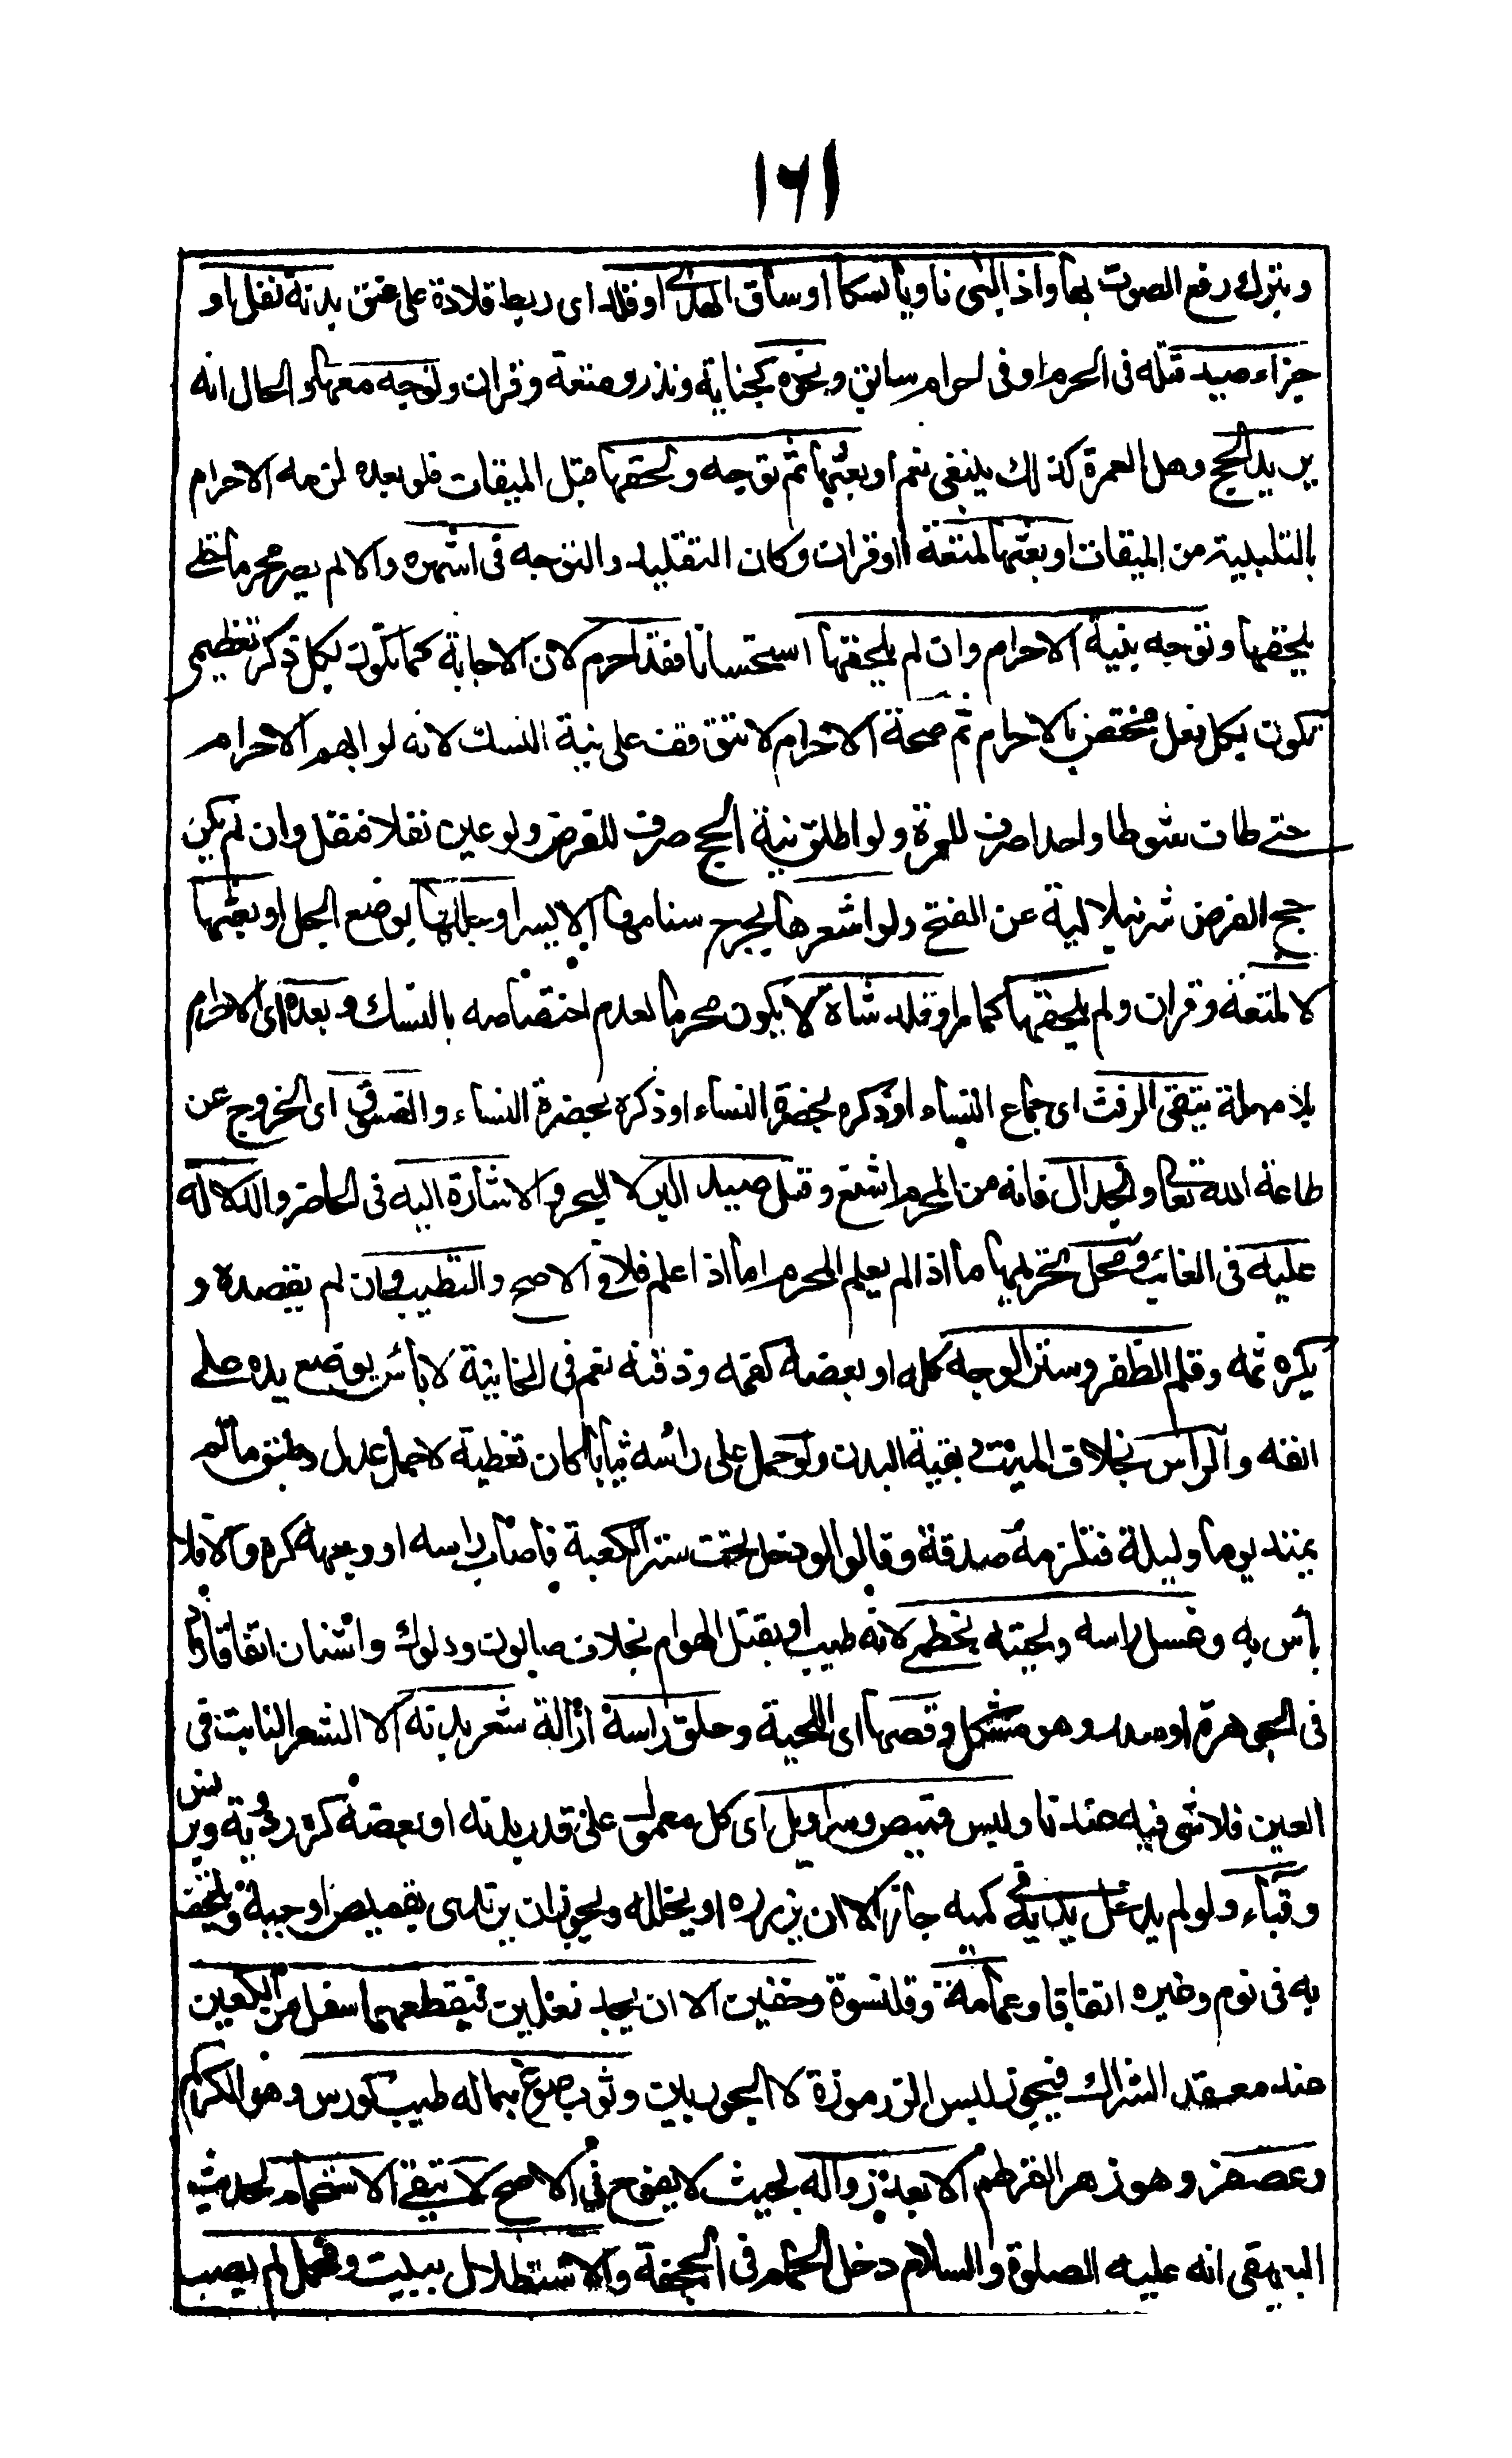 ١٦١
وبترك رفع الصوت بها واذا لبى ناويا نسكا او ساق الهدى او قلد اى ربط قلادة على عنق بدنة نفل او
جزاء صيد قتله فى الحرم او فى احرام سابق ونحوه كجناية ونذر ومتعة وقران وتوجه معها والحال انه
يريد الحج وهل العمرة كذلك ينبغى نعم او بعثها ثم توجه ولحقها قبل الميقات فلو بعده لزمه الاحرام
بالتلبية من الميقات او بعثها لمتعة او قران وكان التقليد والتوجه فى اشهره والا لم يصر محرما حتى
يلحقها وتوجه بنية الاحرام وان لم يلحقها استحسانا فقد احرم لان الاجابة كما تكون بكل ذكر تعظيمى
تكون بكل فعل مختص بالاحرام ثم صحة الاحرام لا تتوقف على نية النسك لانه لو ابهم الاحرام
حتى طاف شوطا واحدا صرف للعمرة ولو اطلق نية الحج صرف للفرض ولو عين نفلا فنفل وان لم يكن
حج الفرض شرنبلالية عن الفتح ولو اشعرها بجرح سنامها الايسر او جللها بوضع الجل او بعثها
لا لمتعة وقران ولم يلحقها كما مر او قلد شاة لا يكون محرما لعدم اختصاصه بالنسك وبعده اى الاحرام
بلا مهلة يتقى الرفث اى جماع النساء او ذكره بحضرة النساء او ذكره بحضرة النساء والفسوق اى الخروج عن
طاعة الله تعا والجدال فانه من المحرم اشنع وقتل صيد البر لا البحر والاشارة اليه فى الحاضر والدلالة
عليه فى الغائب ومحل تحريمها ما اذا لم يعلم المحرم اما اذا علم فلا فى الاصح والتطيب وان لم يقصده و
يكره شمه وقلم الظفر وستر الوجه كله او بعضه كفمه وذقنه نعم فى الخانية لا باس بوضع يده على
انفه والراس بخلاف الميت وبقية البدن ولو حمل على راسه ثيابا كان تغطية لا حمل عدل وطبق ما لم
يمتد يوما وليلة فتلزمه صدقة وقالوا لو دخل تحت ستر الكعبة فاصاب راسه او وجهه كره والا فلا
بأس به وغسل راسه ولحيته بخطمى لانه طيب او يقتل الهوام بخلاف صابون ودلوك واشنان اتفاقا زاد
فى الجوهرة او سدر وهو مشكل وقصها اى اللحية وحلق راسه ازالة شعر بدنه الا الشعر النابت فى
العين فلا شى فيه عندنا ولبس قميص وسراويل اى كل معمول على قدر بدنه او بعضه كزردية وبرنس
وقباء ولو لم يدخل يديه فى كميه جاز الا ان يزرره او يخلله ويجوز ان يرتدى بقميص او جبة ويلتحف
به فى نوم وغيره اتفاقا وعمامة وقلنسوة وخفين الا ان يجد نعلين فيقطعهما اسفل من الكعبين
عند معقد الشراك فيجوز لبس الزرموزة لا الجوربين وثوب صبغ بماله طيب كورس وهو الكركم
وعصفر وهو زهر القرطم الا بعد زواله بحيث لا يفوح فى الاصح لا يتقى الاستحمام لحديث
البيهقى انه عليه الصلوة والسلام دخل الحمام فى الجحفة والاستظلال ببيت ومحمل لم يصب